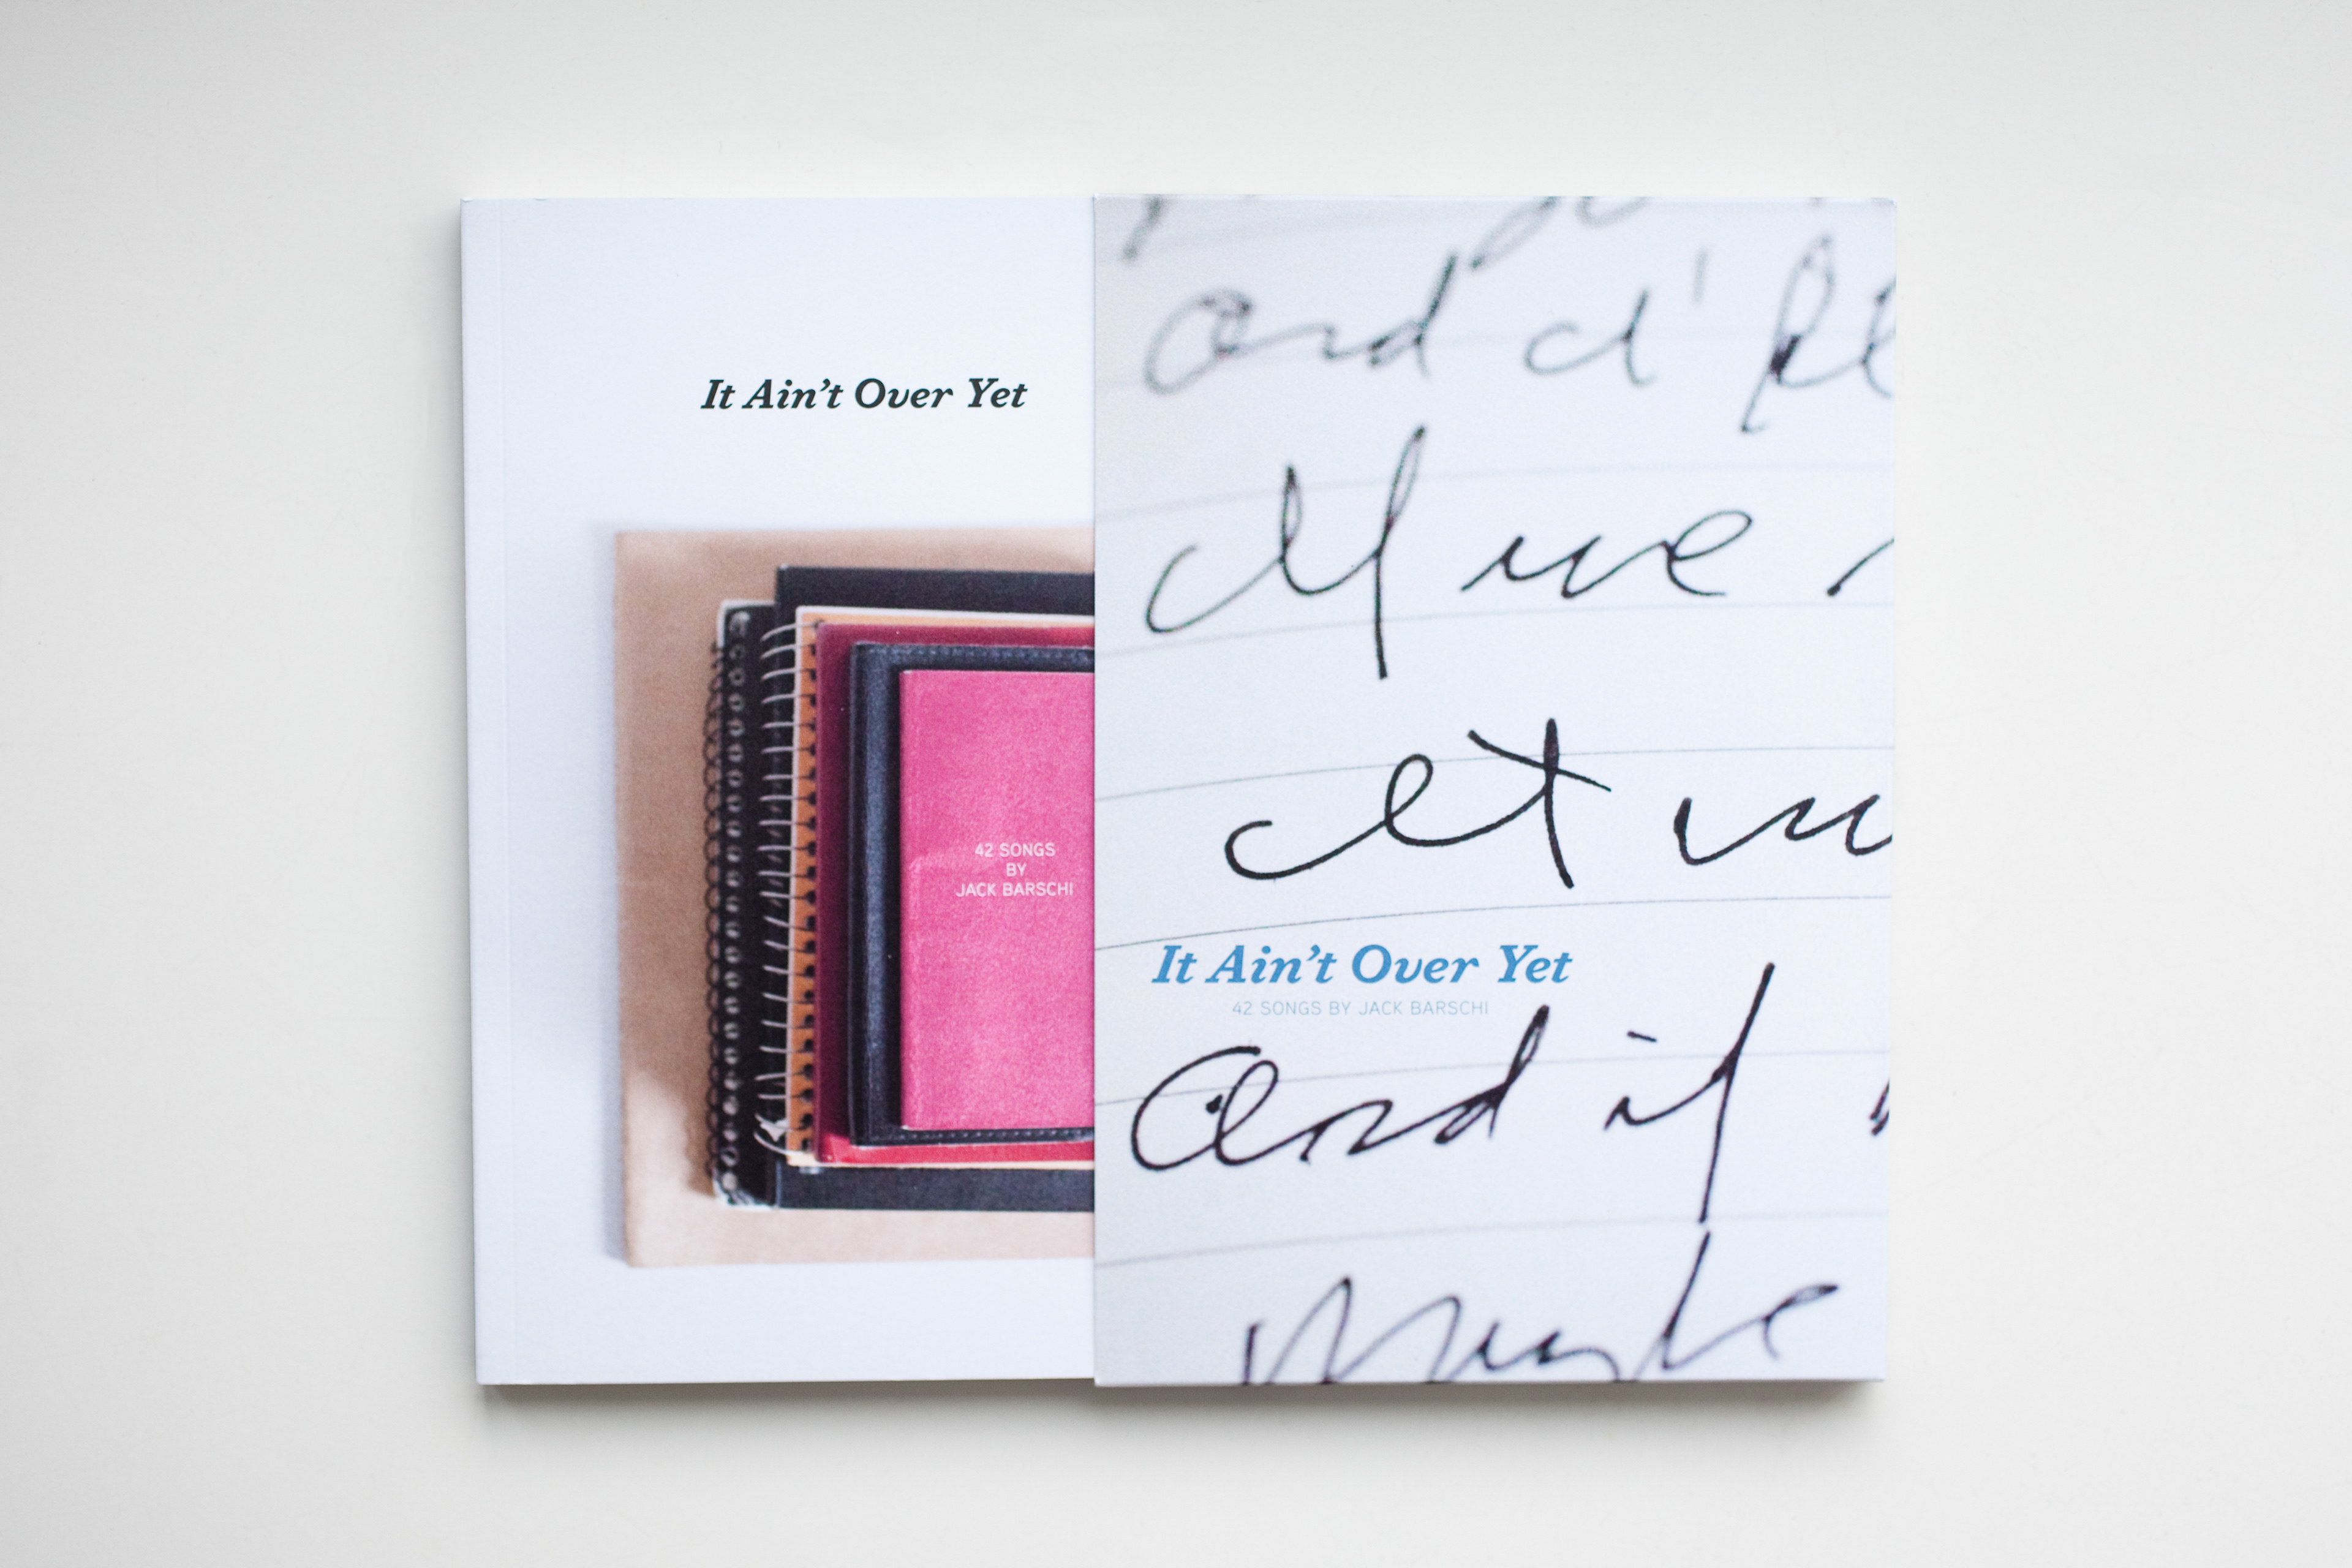 It Ain't Over Yet
42 SONGS
BY
JACK BARSCHI
and I'
If we
It
It Ain't Over Yet
42 SONGS BY JACK BARSCHI
And if
Maybe